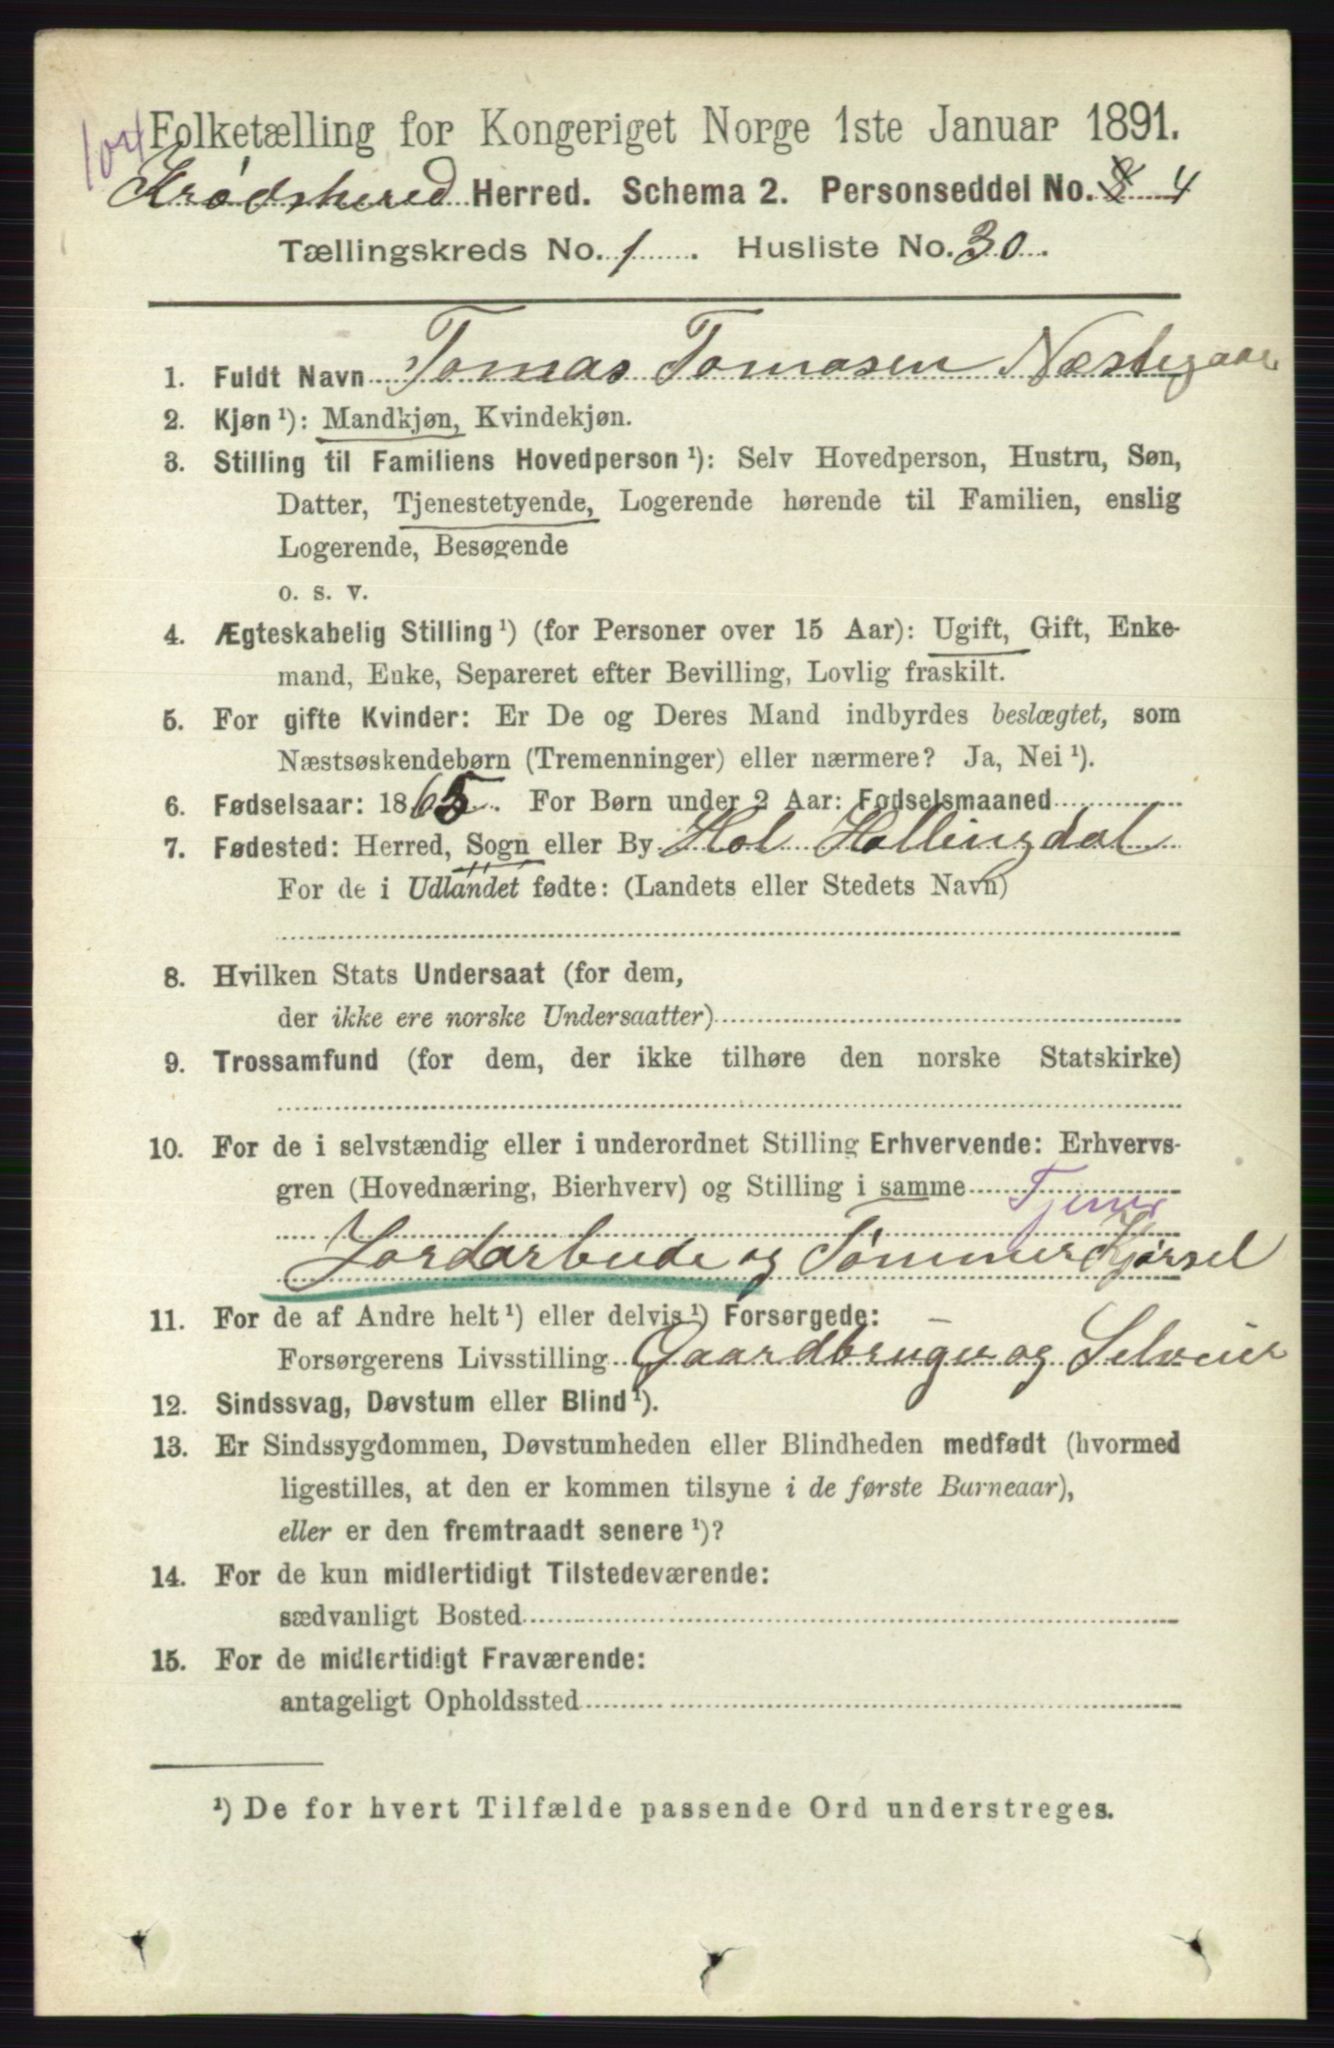 104
Folketælling for Kongeriget Norge 1ste Januar 1891.
Krødshered Herred. Schema 2. Personseddel No. 8 4
Tællingskreds No. 1. Husliste No. 30.
1. Fuldt Navn Tomas Tomasen Næstegaar
2. Kjøn ¹): Mandkjøn, Kvindekjøn.
3. Stilling til Familiens Hovedperson ¹): Selv Hovedperson, Hustru, Søn,
Datter, Tjenestetyende, Logerende hørende til Familien, enslig
Logerende, Besøgende
o. s. v.
4. Ægteskabelig Stilling ¹) (for Personer over 15 Aar): Ugift, Gift, Enke-
mand, Enke, Separeret efter Bevilling, Lovlig fraskilt.
5. For gifte Kvinder: Er De og Deres Mand indbyrdes beslægtet, som
Næstsøskendebørn (Tremenninger) eller nærmere? Ja, Nei ¹).
6. Fødselsaar: 1865. For Børn under 2 Aar: Fødselsmaaned
7. Fødested: Herred, Sogn eller By Hol Hallingdal
For de i Udlandet fødte: (Landets eller Stedets Navn)
8. Hvilken Stats Undersaat (for dem,
der ikke ere norske Undersaatter)
9. Trossamfund (for dem, der ikke tilhøre den norske Statskirke)
10. For de i selvstændig eller i underordnet Stilling Erhvervende: Erhvervs-
gren (Hovednæring, Bierhverv) og Stilling i samme Tjener
Jordarbeide og Tømmer Kjørsel
11. For de af Andre helt ¹) eller delvis ¹) Forsørgede:
Forsørgerens Livsstilling Gaardbruger og Selveier
12. Sindssvag, Døvstum eller Blind ¹).
13. Er Sindssygdommen, Døvstumheden eller Blindheden medfødt (hvormed
ligestilles, at den er kommen tilsyne i de første Barneaar),
eller er den fremtraadt senere ¹)?
14. For de kun midlertidigt Tilstedeværende:
sædvanligt Bosted
15. For de midlertidigt Fraværende:
antageligt Opholdssted
¹) De for hvert Tilfælde passende Ord understreges.